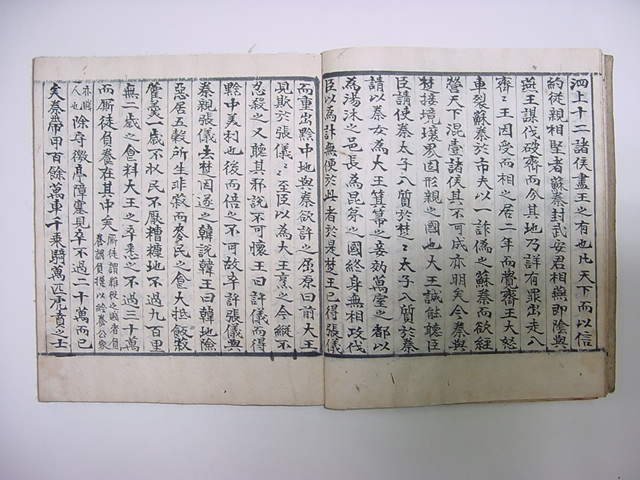 泗上十二諸侯盡王之有也凡天下而以信
約從親相堅者蘇秦封武安君相燕即陰與
燕王謀伐破齊而分其地乃詳有罪出走入
齊〻王因受而相之居二年而覺齊王大怒
車裂蘇秦於市夫以一詐偽之蘇秦而欲經
營天下混壹諸侯其不可成亦明矣今秦與
楚接境壤界固形親之國也大王誠能聽臣
臣請使秦太子入質於楚〻太子入質於秦
請以秦女為大王箕箒之妾效萬室之都以
為湯沐之邑長為昆弟之國終身無相攻伐
臣以為計無便於此者於是楚王已得張儀
而重出黔中地與秦欲許之屈原曰前大王
見欺於張儀〻〻至臣以為大王烹之今縱不
忍殺之又聽其邪說不可懷王曰許儀而得
黔中美利也後而倍之不可故卒許張儀與
秦親張儀去楚因遂之韓說韓王曰韓地險
惡居五穀所生非菽而麥民之食大抵飯菽
藿羹一歲不收民不厭糟糠地不過九百里
無二歲之食料大王之卒悉之不過三十萬
而廝徒負養在其中矣廝徒謂雜役之賤者負養謂負檐以給養公家
亦賤人也除守徼亭障塞見卒不過二十萬而已
矣秦帶甲百餘萬車千乘騎萬匹虎賁之士